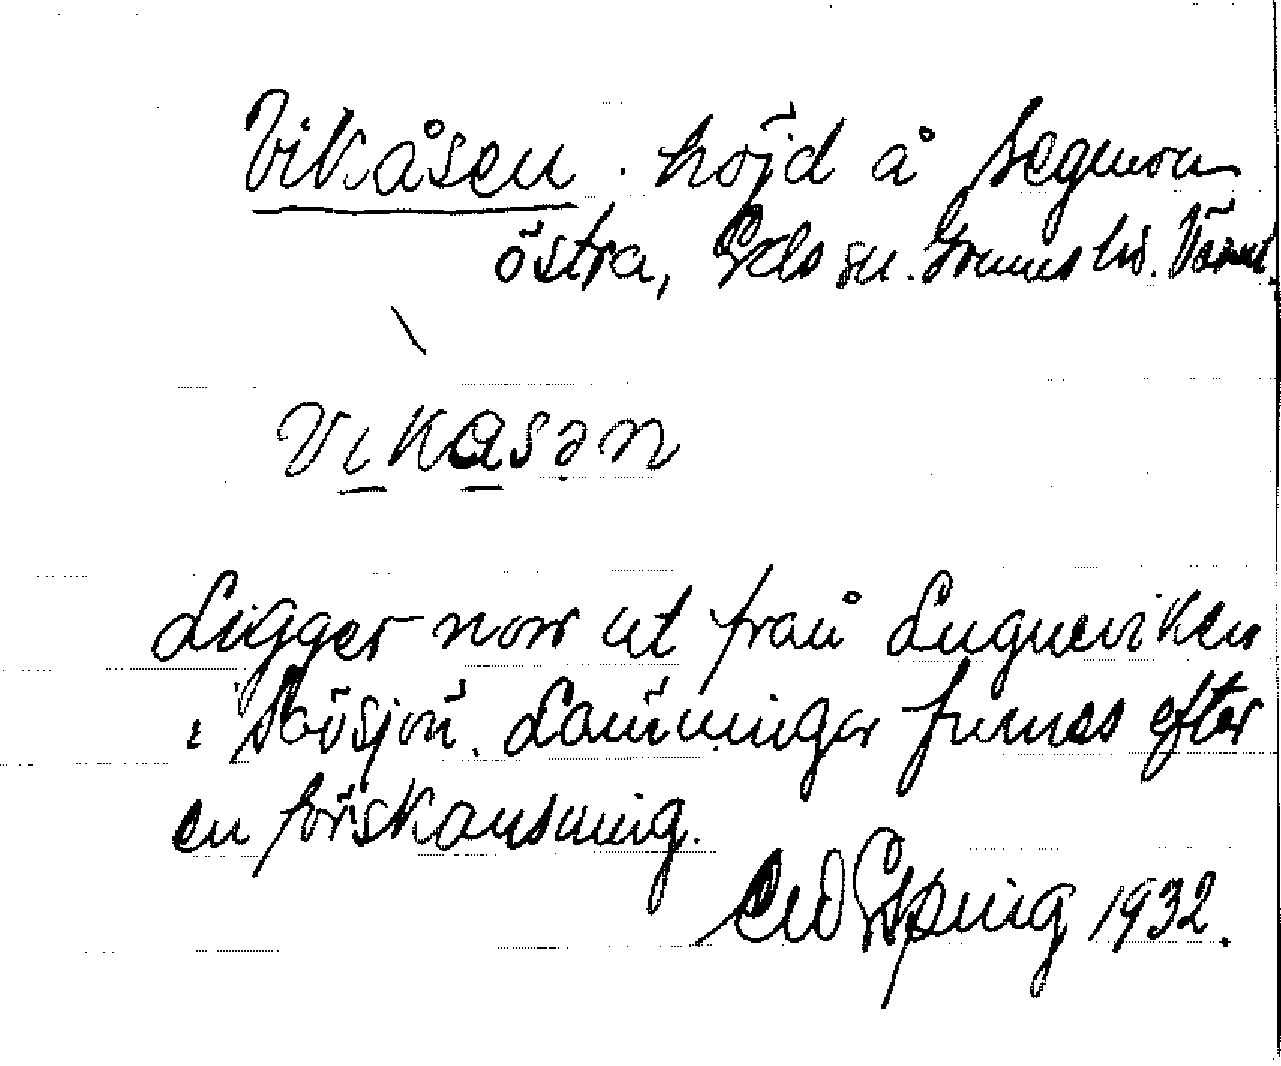 Vikåsen. höjd å Segmon
östra, Eds sn. Grums hd. Värml.
Vikasən
Ligger norr ut från Lugneviken
i Slösjön. Lämningar finnas efter
en förskansning.
Esping 1932.